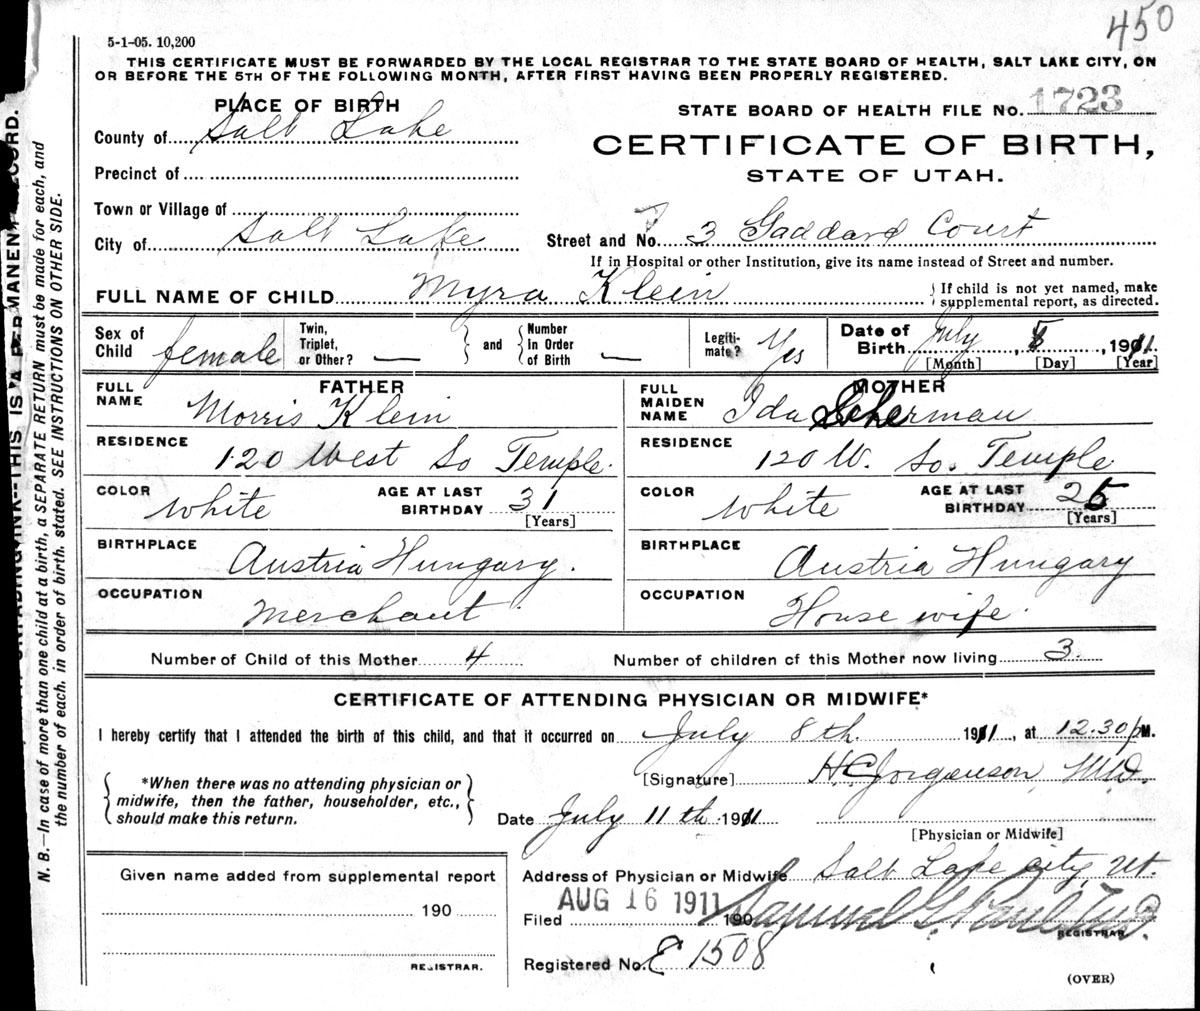 450
5-1-05. 10,200
THIS CERTIFICATE MUST BE FORWARDED BY THE LOCAL REGISTRAR TO THE STATE BOARD OF HEALTH, SALT LAKE CITY, ON
OR BEFORE THE 5TH OF THE FOLLOWING MONTH, AFTER FIRST HAVING BEEN PROPERLY REGISTERED.
PLACE OF BIRTH
County of Salt Lake
Precinct of
Town or Village of
City of Salt Lake
STATE BOARD OF HEALTH FILE No. 1723
CERTIFICATE OF BIRTH,
STATE OF UTAH.
Street and No. 3 Gaddard Court
If in Hospital or other Institution, give its name instead of Street and number.
FULL NAME OF CHILD Myra Klein
If child is not yet named, make
supplemental report, as directed.
Sex of Child female
Twin, Triplet, or Other? —
and
Number In Order of Birth —
Legiti- mate? Yes
Date of Birth July, 8, 1911
[Month] [Day] [Year]
FATHER
FULL NAME Morris Klein
RESIDENCE 120 West So Temple.
COLOR white AGE AT LAST BIRTHDAY 31
[Years]
BIRTHPLACE Austria Hungary.
OCCUPATION Merchant
MOTHER
FULL MAIDEN NAME Ida Scherman
RESIDENCE 120 W. So. Temple
COLOR white AGE AT LAST BIRTHDAY 25
[Years]
BIRTHPLACE Austria Hungary
OCCUPATION House wife.
Number of Child of this Mother 4 Number of children of this Mother now living 3
CERTIFICATE OF ATTENDING PHYSICIAN OR MIDWIFE*
I hereby certify that I attended the birth of this child, and that it occurred on July 8th. 1911, at 12.30 p M.
*When there was no attending physician or
midwife, then the father, householder, etc.,
should make this return.
[Signature] H.C. Jorgenson, M.D.
Date July 11th 1911
[Physician or Midwife]
Given name added from supplemental report
190
REGISTRAR.
Address of Physician or Midwife Salt Lake city, Ut.
Filed AUG 16 1911 190
Samuel G. Paul
REGISTRAR
Registered No. E 1508
(OVER)
N. B.—In case of more than one child at a birth, a SEPARATE RETURN must be made for each, and
the number of each, in order of birth, stated. SEE INSTRUCTIONS ON OTHER SIDE.
UNFADING INK--THIS IS A PERMANENT RECORD.